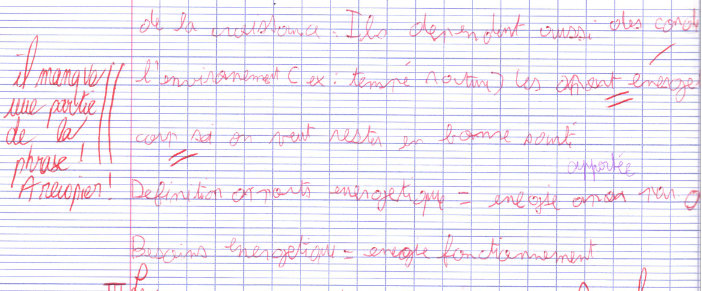 de la croissance. Ils dependent aussi des cond
l'environement (ex: tempré ) les apport energe
il manque
une partie
de la
phrase !
A recopier !
car si on veut rester en bonne santé
apportée
Definition apports energetique = energie par
Besoins energetique = energie fonctionnement
III